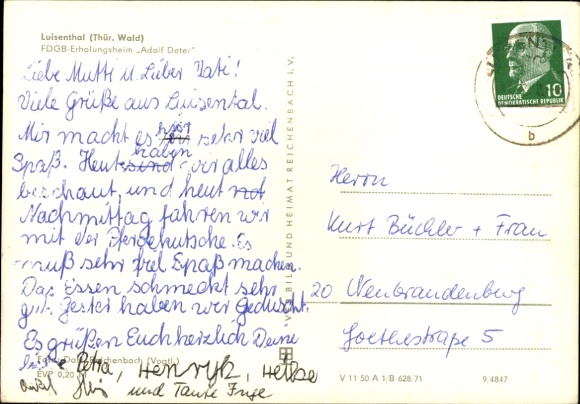 Luisenthal (Thür. Wald)
FDGB-Erholungsheim „Adolf Deter"
Liebe Mutti u. Lieber Vati!
Viele Grüße aus Luisental.
Mir macht es hier sehr viel
Spaß. Heut haben wir alles
beschaut, und heut
Nachmittag fahren wir
mit der Pferdekutsche. Es
muß sehr viel Spaß machen.
Das Essen schmeckt sehr
gut. Gester haben wir Geduscht.
Es grüßen Euch herzlich Deine
Petra, Henryk, Heike
und Tante Inge
Foto: Reichenbach (Vogtl.)
EVP 0,20 M
VEB BILD UND HEIMAT REICHENBACH I. V.
10
DEUTSCHE
DEMOKRATISCHE REPUBLIK
b
Herrn
Kurt Büchler + Frau
20 Neubrandenburg
Goethestraße 5
V 11 50 A 1/B 628/71
9.4847